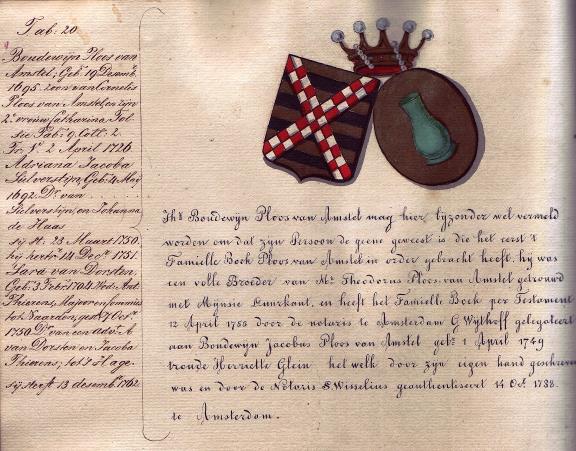 Tab: 20
Boudewijn Ploos van
Amstel, Geb. 19 Desemb.
1695. zoon van Cornelis
Ploos van Amstel en zijn
2e. vrouw Catharina Tol
sie Tab. 9. Cott: 2.
Tr. 1e. 2 April 1726
Adriana Jacoba
Silverstijn, Geb: 4 May
1692. Dr. van
Silverstijn, en Johanna
de Haas
sij st. 23 Maart 1750.
hij hertr. 14 Decr. 1751.
Sara van Dorsten,
Geb: 3 Febr 1704 Wed. Ant.
Thierens, Majoor en
tot Naarden, gest 7 Octr.
1750 Dr. van een advt. A
van Dorsten en Jacoba
Thierens; tot 's Hage.
sij sterft 13 desembr. 1762
Boudewijn Ploos van Amstel mag hier bijzonder wel vermeld
worden om dat zijn Persoon de geene geweest is die het eerst 't
Familie Boek Ploos van Amstel in order gebracht heeft, hij was
een volle Broeder van Mr. Theodorus Ploos van Amstel getrouwd
met Mijnsie Kuurkant, en heeft het Familie Boek per Testament
12 April 1755 door de notaris te Amsterdam G Wijthoff gelegateert
aan Boudewijn Jacobus Ploos van Amstel gebr. 1 April 1749
troude Herriette Glein het welk door zijn eigen hand geschreven
was en door de Notaris S. Wisselius geauthentiseert 14 Oct. 1788.
te Amsterdam.